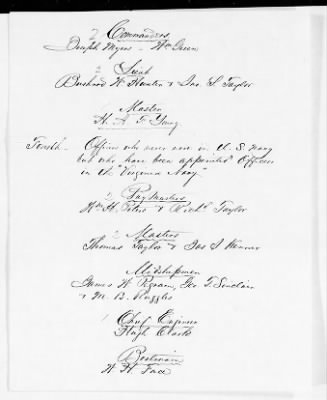 2 Commanders
Joseph Myers - Wm Green
2 Lieuts
Bushrod W. Hunter & Jas. S Taylor
1 Master
H. A. F. Young
Fourth - Officers who never were in U. S. Navy
but who have been appointed Officers
in the "Virginia Navy"
2 Pay Masters
Wm H. Peters & Richd. Taylor
2 Masters
Thomas Taylor & Jas S Kennor
Midshipmen
James W Pegram, Geo T. Sinclair
& M. B. Ruggles
1 Chief Engineer
Hugh Clark
1 Boatswain
W. H. Face